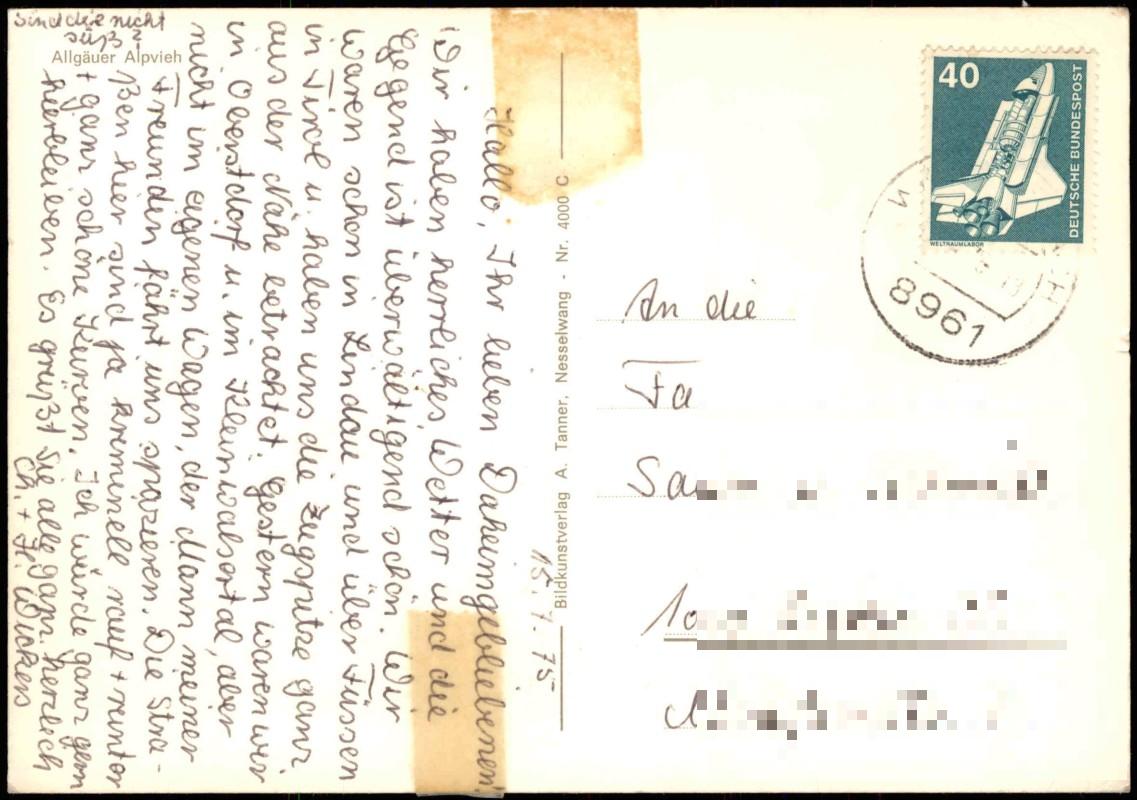 Sind die nicht
süß?
Allgäuer Alpvieh
15.7.75
Hallo, Ihr lieben Daheimgebliebenen!
Wir haben herrliches Wetter und die
Gegend ist überwältigend schön. Wir
waren schon in Lindau und über Füssen
in Tirol u. haben uns die Zugspitze ganz
aus der Nähe betrachtet. Gestern waren wir
in Oberstdorf u. im Kleinwalsertal, aber
nicht im eigenen Wagen, der Mann meiner
Freundin fährt uns spazieren. Die Stra-
ßen hier sind ja kriminell rauf + runter
+ ganz schöne Kurven. Ich würde ganz gern
hierbleiben. Es grüßt Sie alle ganz herzlich
Ch. + H. Wickers
Bildkunstverlag A. Tanner, Nesselwang - Nr. 4000 C
40
DEUTSCHE BUNDESPOST
WELTRAUMLABOR
8961
An die
Fa
Sa
10